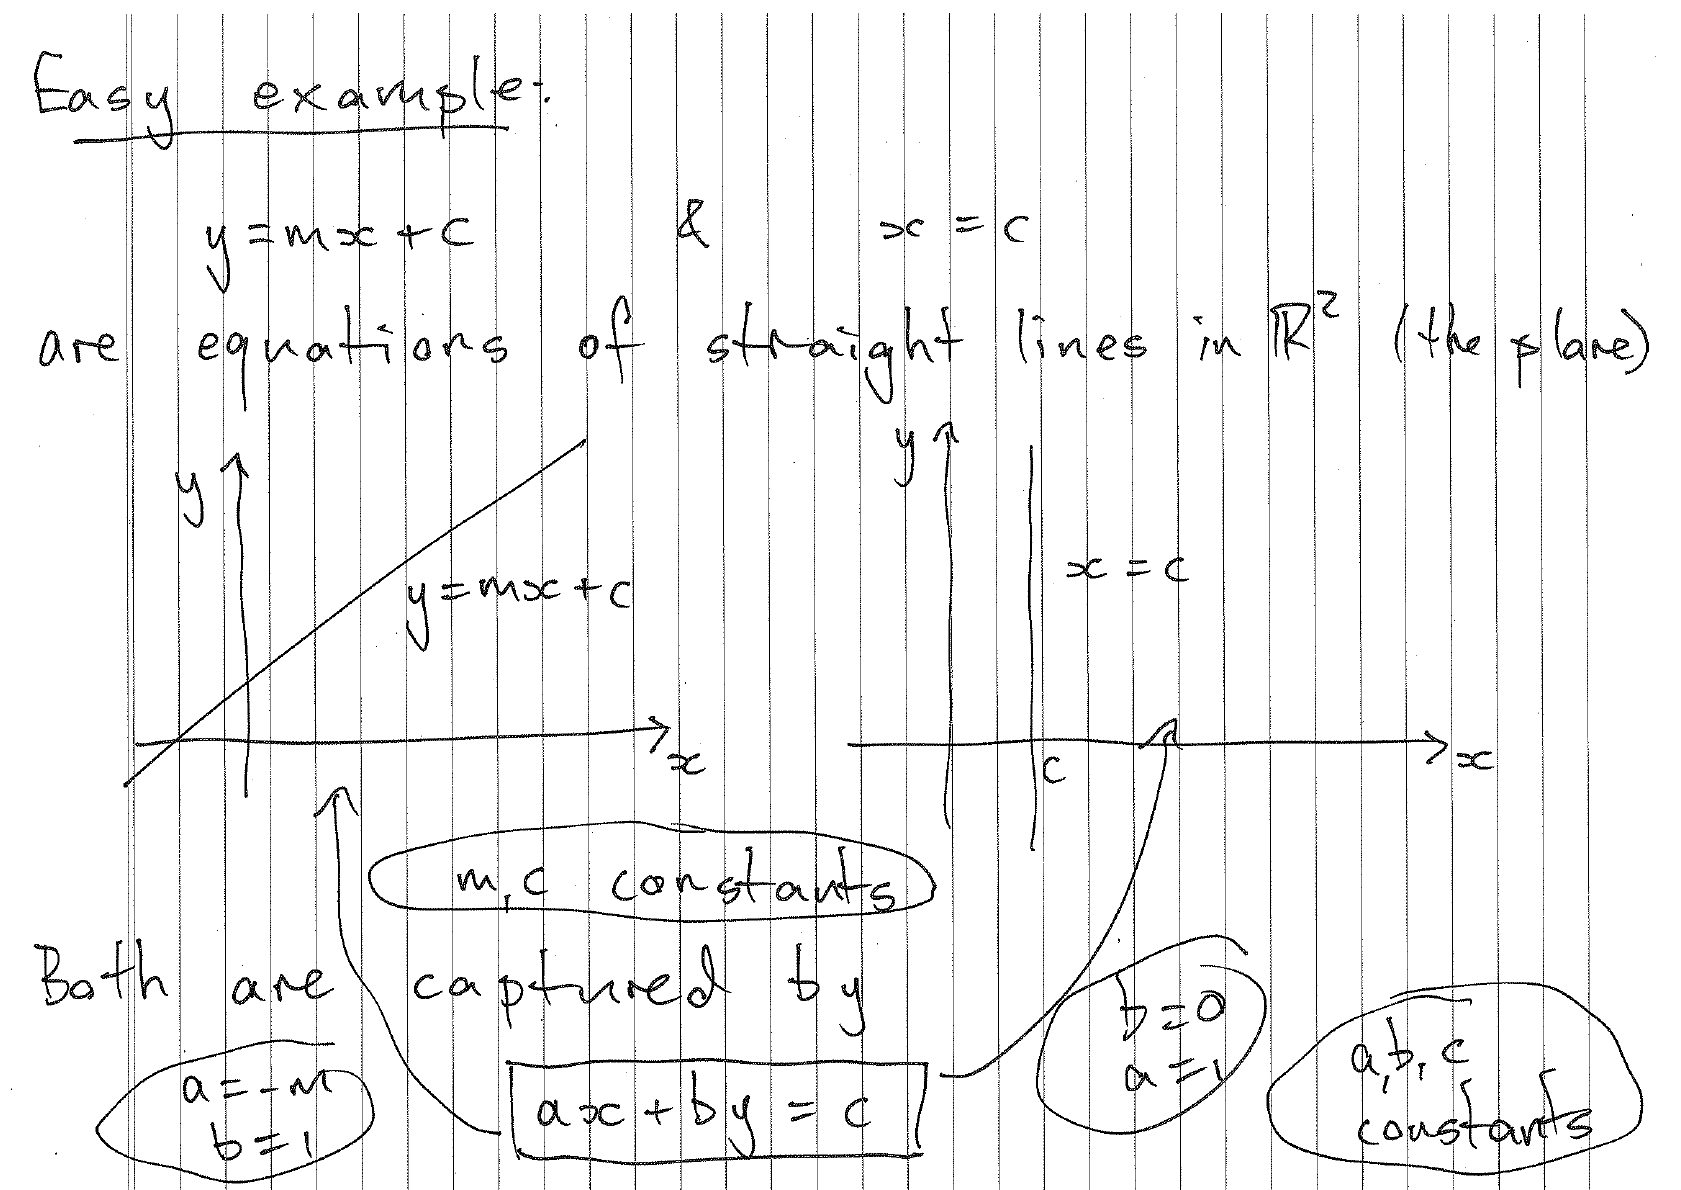 Easy example:
y = mx + c & x = c
are equations of straight lines in ℝ² (the plane)
y
y = mx + c
x
y
x = c
c
x
m, c constants
Both are captured by
a = -m
b = 1
ax + by = c
b = 0
a = 1
a, b, c
constants